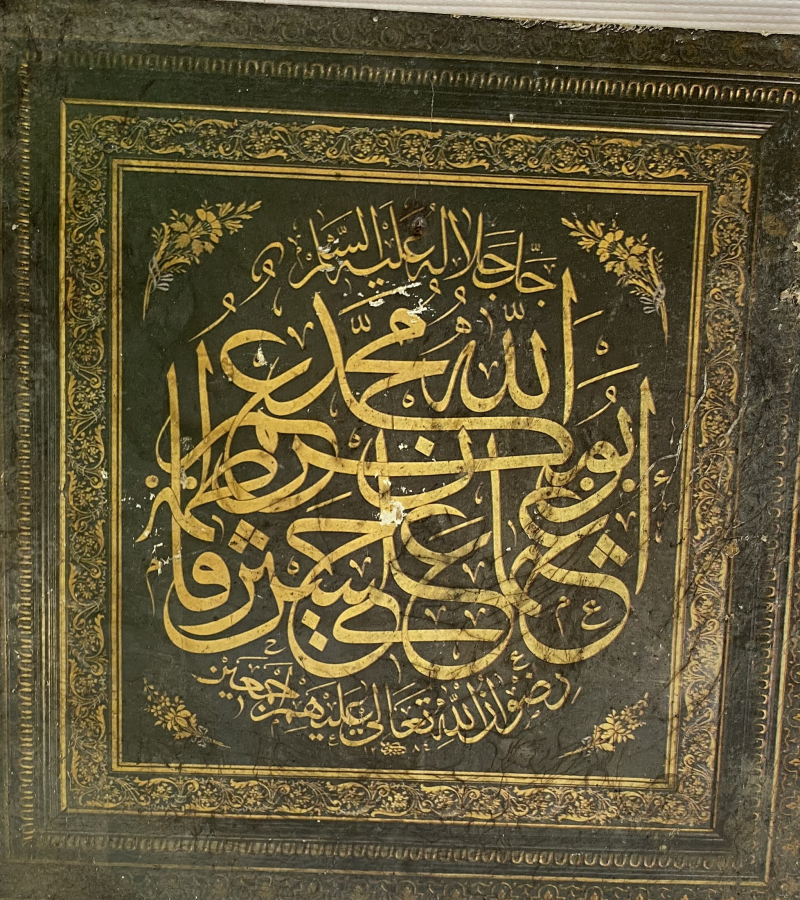 جل جلاله عليه السلام
الله محمد
ابوبكر عمر
عثمان علي حسن حسين فاطمه
رضوان الله تعالى عليهم اجمعين
١٢٨٤